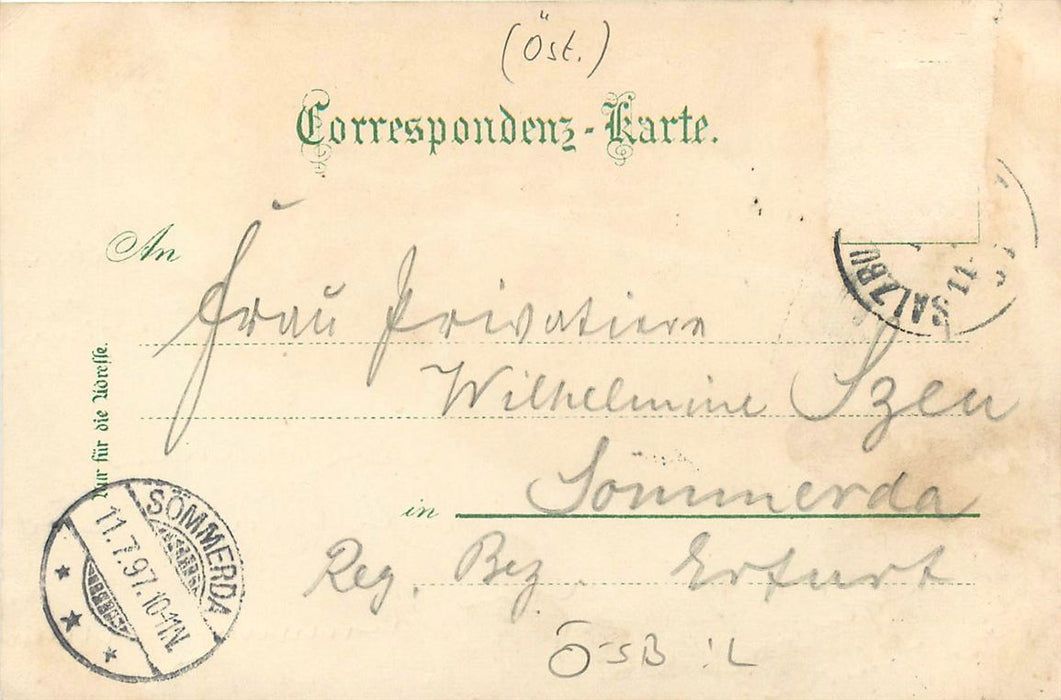 (Öst.)
Correspondenz-Karte.
An
Frau Privatiere
Wilhelmine
Sömmerda
in
Reg. Bez. Erfurt
Nur für die Adresse.
SÖMMERDA
11.7.97.10-11N.
SALZBU
11
ÖSB :L